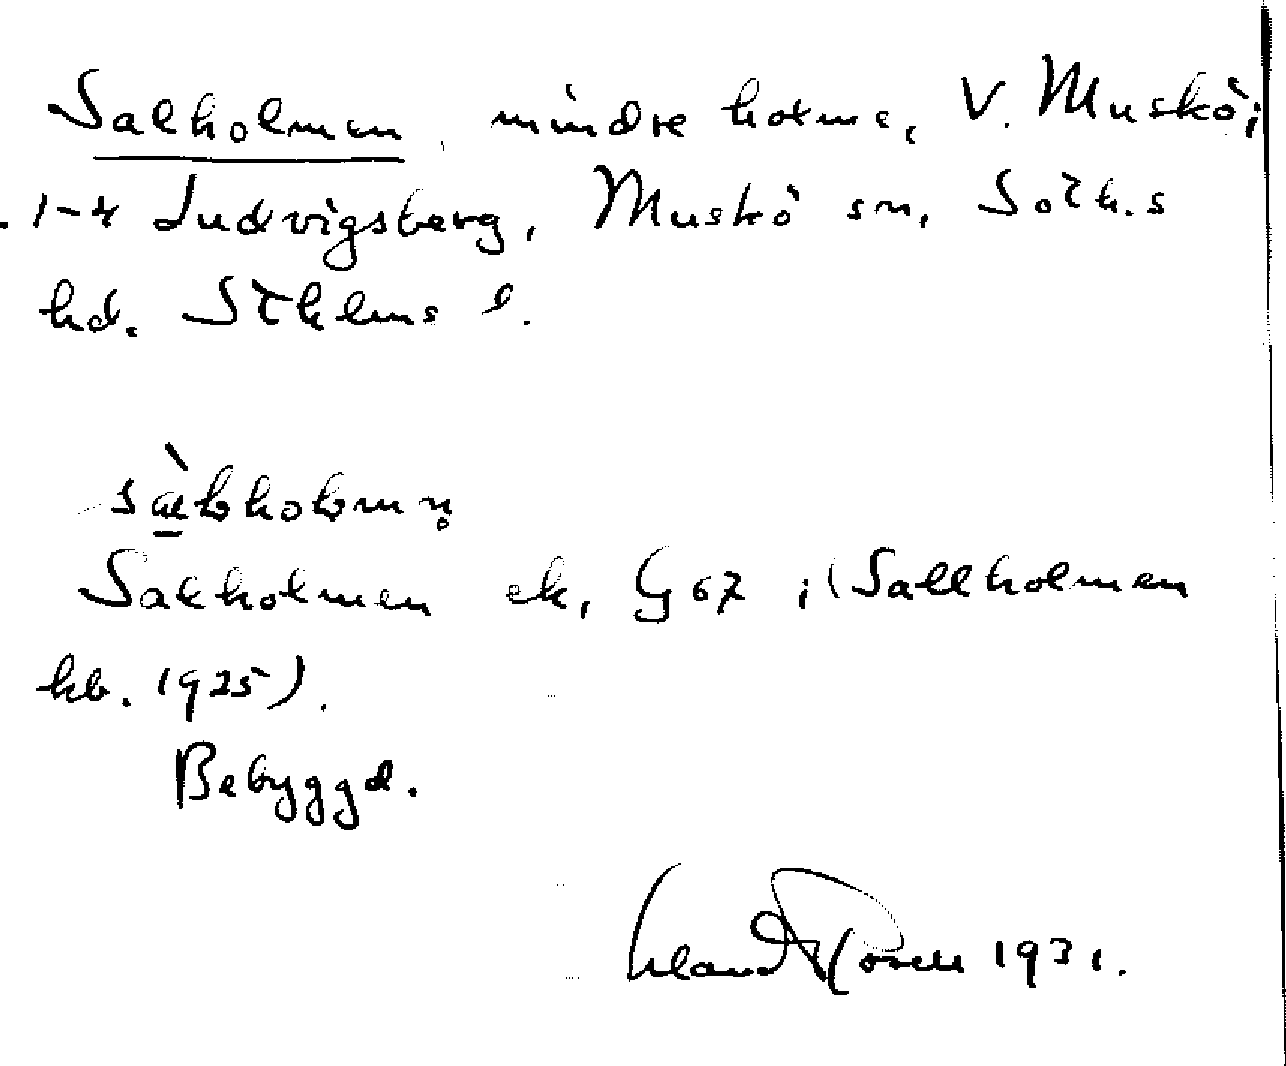 Salholmen, mindre holme, V. Muskö;
1-4 Ludvigsberg, Muskö sn, Soth.s
hd. Sthlms l.
sàlholmn̥
Salholmen ek, G 67 ; (Sallholmen
kb. 1925).
Bebyggd.
1931.